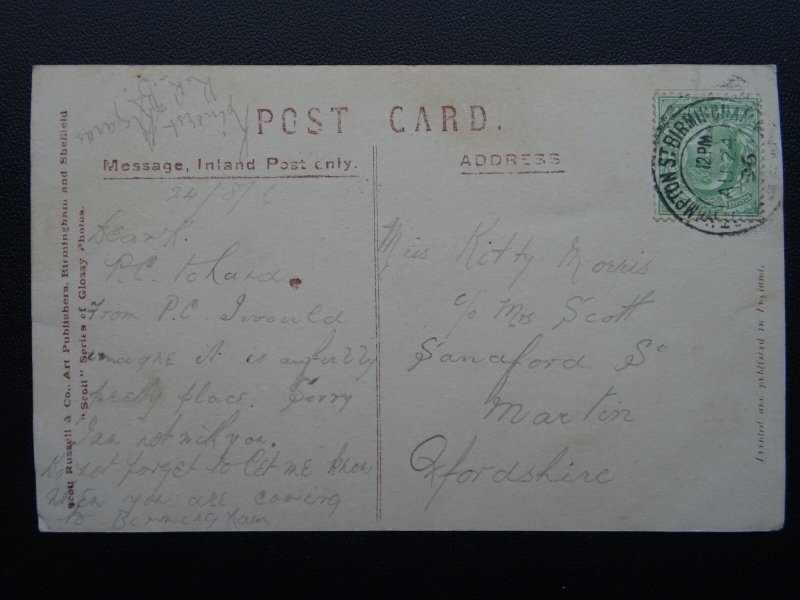 POST CARD.
Message, Inland Post only.
ADDRESS
Scott Russell & Co., Art Publishers, Birmingham and Sheffield
"Scott" Series of Glossy Photos.
Printed and published in England.
HAMPTON ST BIRMINGHAM
12 PM
AU 24
06
24/8/6
Dear K.
P.C. to hand.
From P.C. I would
imagine it is awfully
pretty place. Sorry
I am not with you.
Do not forget to let me know
when you are coming
to Birmingham
Kindest Regards
Miss Kitty Morris
c/o Mrs Scott
Sandford St
Martin
Oxfordshire